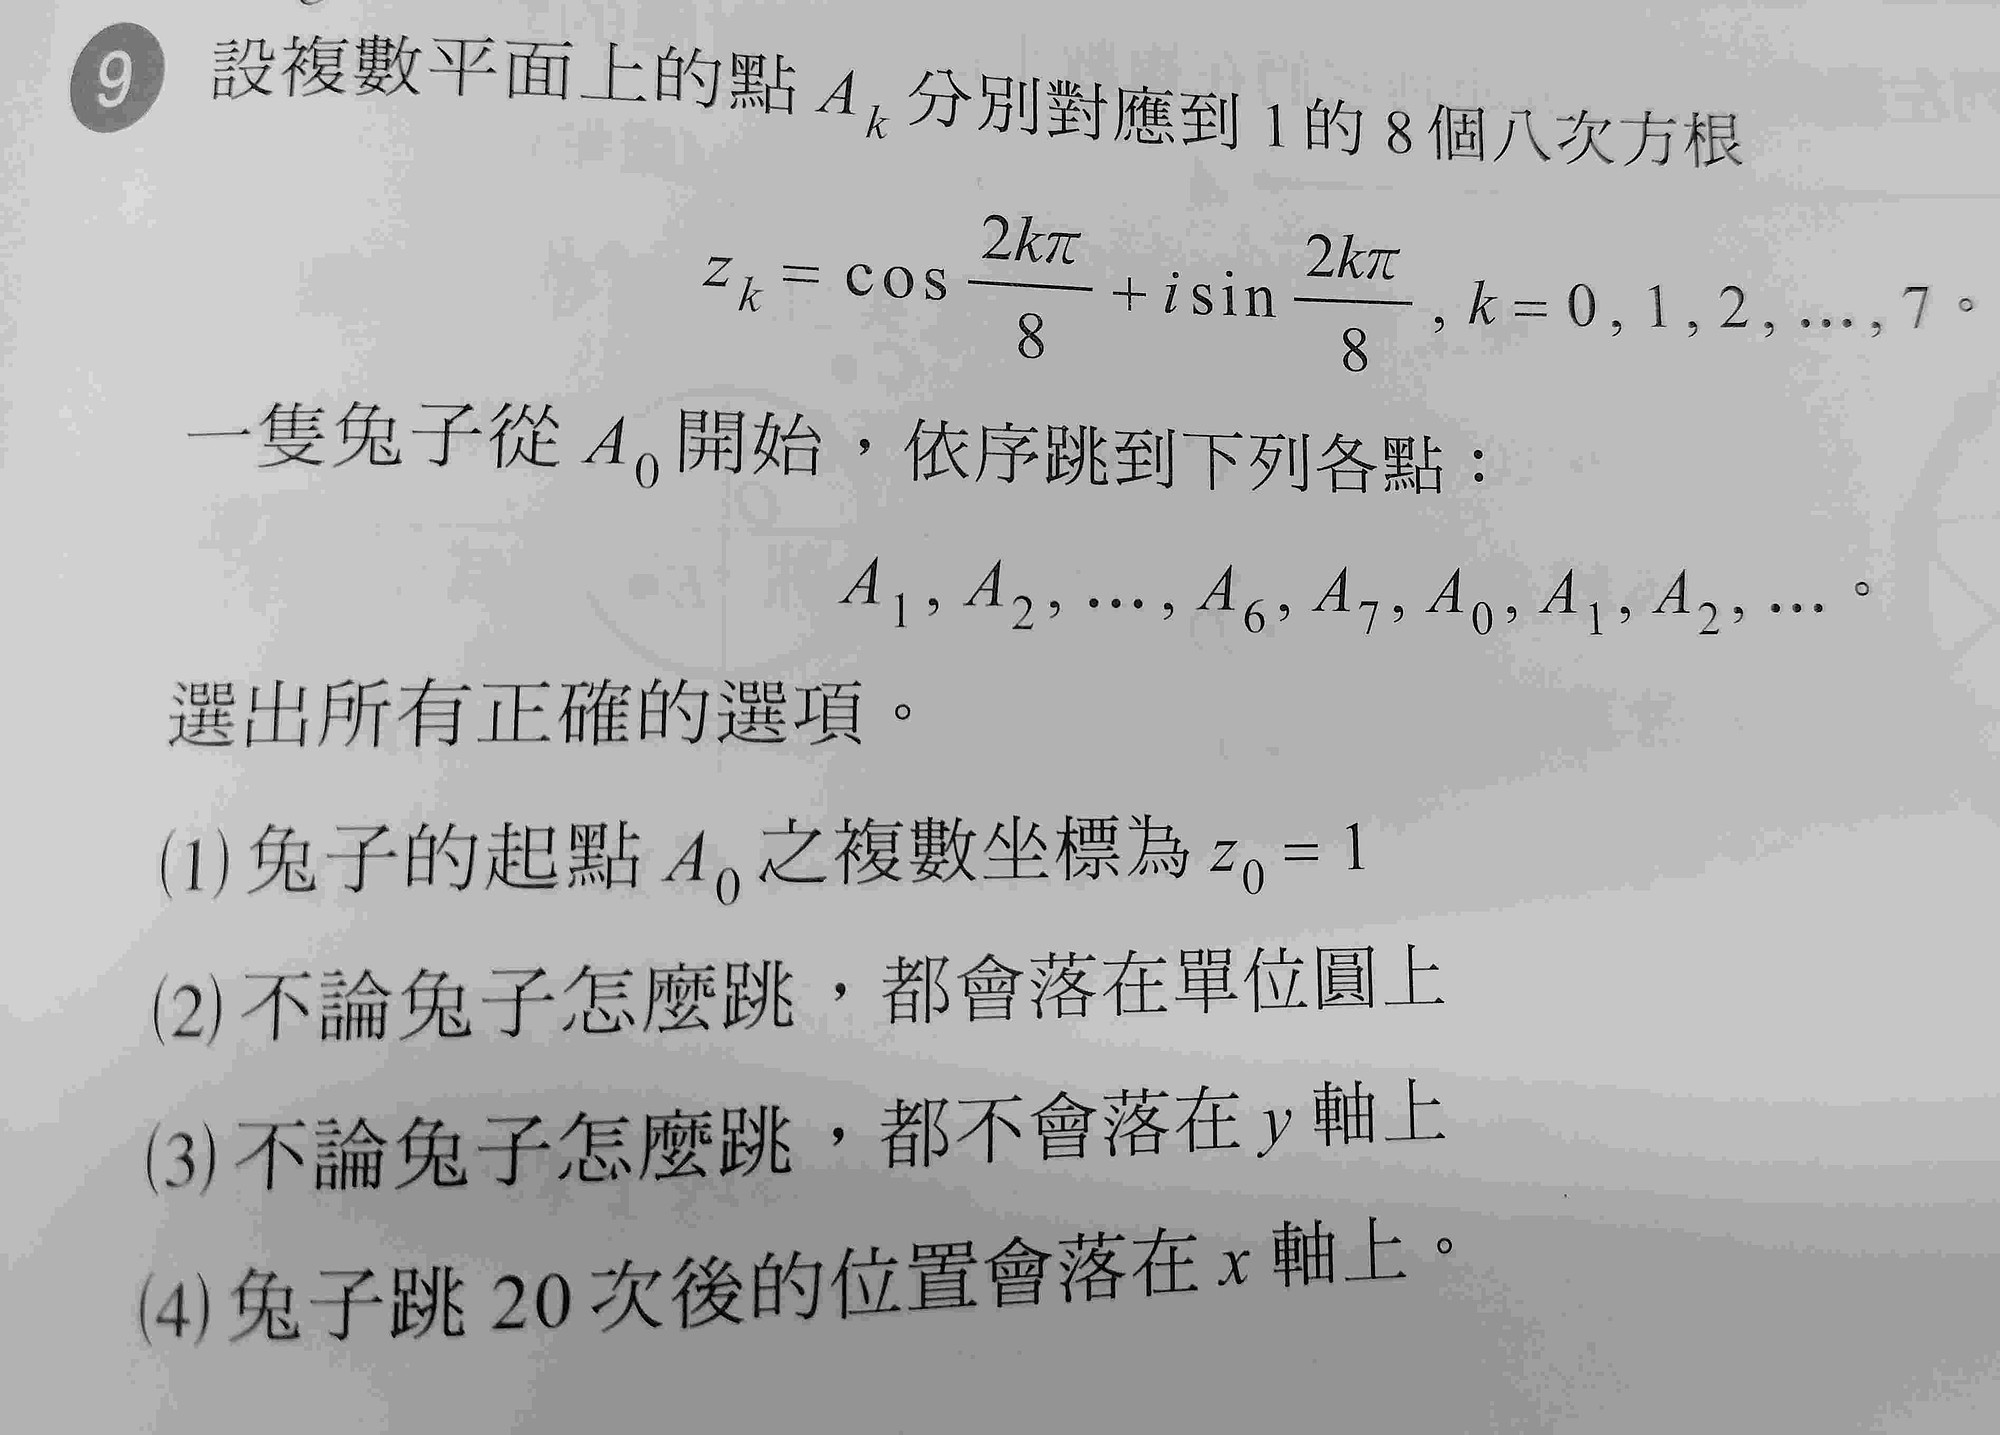 9 設複數平面上的點 Aₖ 分別對應到 1 的 8 個八次方根
zₖ = cos 2kπ/8 + i sin 2kπ/8 , k = 0 , 1 , 2 , … , 7 。
一隻兔子從 A₀ 開始，依序跳到下列各點：
A₁ , A₂ , … , A₆ , A₇ , A₀ , A₁ , A₂ , … 。
選出所有正確的選項。
(1) 兔子的起點 A₀ 之複數坐標為 z₀ = 1
(2) 不論兔子怎麼跳，都會落在單位圓上
(3) 不論兔子怎麼跳，都不會落在 y 軸上
(4) 兔子跳 20 次後的位置會落在 x 軸上。